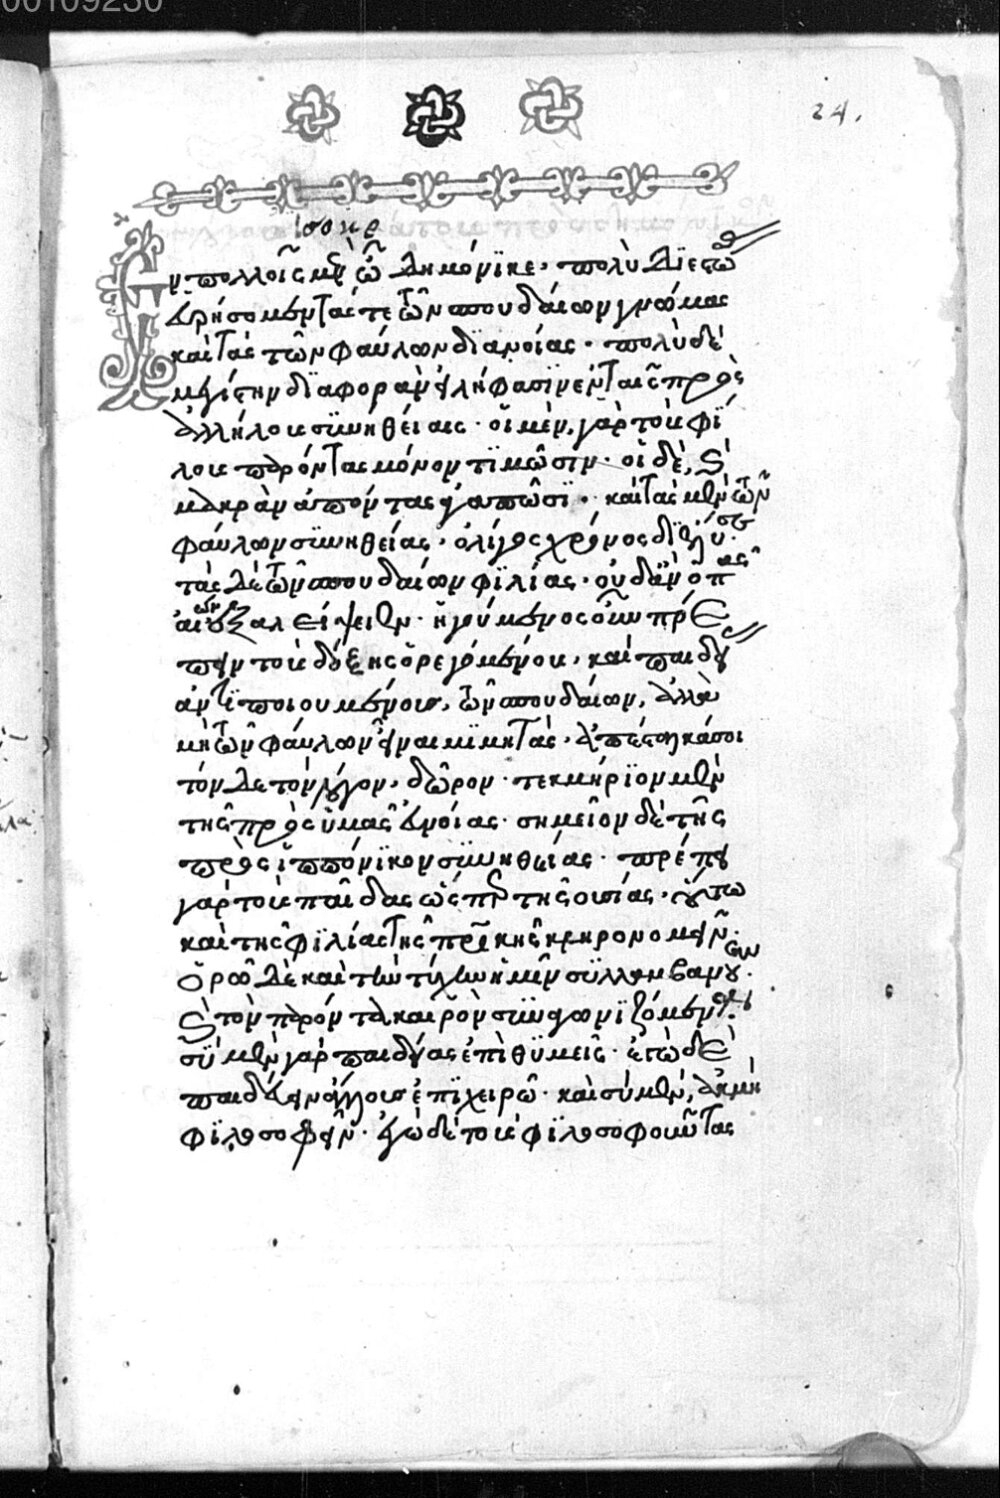 00109230
24.
ἰσοκρ
Ἐν πολλοῖς μὲν ὦ Δημόνϊκε, πολὺ διεστω
εὑρήσομεν τάς τε τῶν σπουδαίων γνώμας
καὶ τὰς τῶν φαύλων διανοίας · πολὺ δὲ
μεγίστην διαφορὰν εἰλήφασϊν ἐν ταῖς πρὸς
ἀλλήλους συνηθείαις · οἱ μὲν, γὰρ τοὺς φί
λους παρόντας μόνον τϊμῶσιν · οἱ δὲ, καὶ
μακρὰν ἀπόντας ἀγαπῶσϊ · καὶ τὰς μὲν τῶν
φαύλων συνηθείας, ὀλίγος χρόνος διέλυσε ·
τὰς δὲ τῶν σπουδαίων φϊλίας · οὐδ' ἂν ὁ πᾶς
αἰὼν ἐξαλείψειεν · ἡγούμενος οὖν πρέ
πειν τοὺς δόξης ὀρεγομένους, καὶ παιδεί
ἀντϊποιουμένους, τῶν σπουδαίων, ἀλλὰ
μὴ τῶν φαύλων εἶναι μϊμητὰς, ἀπέσταλκά σοι
τόν δε τὸν λόγον, δῶρον · τεκμήρϊον μὲν
τῆς πρὸς ὑμᾶς εὐνοίας · σημεῖον δὲ τῆς
πρὸς ἱππόνϊκον συνηθείας · πρέπει
γὰρ τοὺς παῖδας ὥσπερ τῆς οὐσίας, οὕτω
καὶ τῆς φϊλίας τῆς πατρικῆς κληρονομεῖν ·
ὁρῶ δὲ καὶ τὴν τύχην ἡμῖν συλλαμβάνουσαν ·
καὶ τὸν παρόντα καιρὸν συναγωνϊζόμενον ·
σὺ μὲν γὰρ παιδείας ἐπιθυμεῖς · ἐγὼ δὲ
παιδεύειν ἄλλους ἐπϊχειρῶ · καὶ σοὶ μὲν, ἀκμὴ
φϊλοσοφεῖν · ἐγὼ δὲ τοὺς φϊλοσοφοῦντας